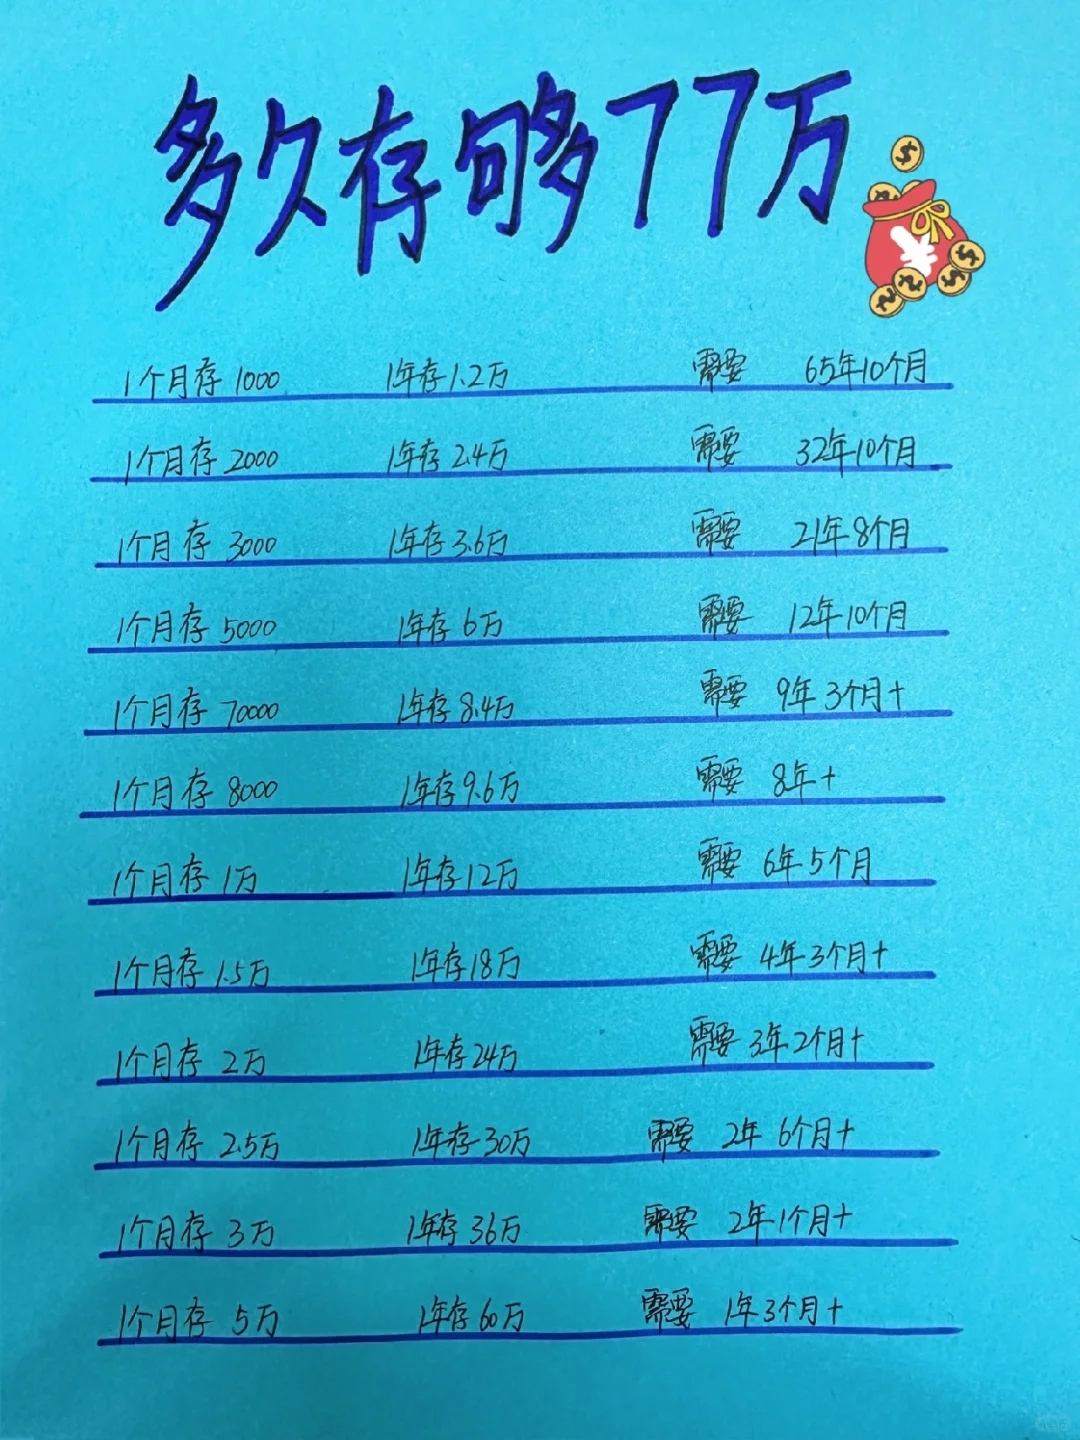 多久存够77万
1个月存 1000 1年存1.2万 需要 65年10个月
1个月存 2000 1年存 2.4万 需要 32年10个月
1个月存 3000 1年存3.6万 需要 21年8个月
1个月存 5000 1年存6万 需要 12年10个月
1个月存 70000 1年存8.4万 需要 9年3个月+
1个月存 8000 1年存9.6万 需要 8年+
1个月存 1万 1年存12万 需要 6年5个月
1个月存 1.5万 1年存18万 需要 4年3个月+
1个月存 2万 1年存24万 需要 3年2个月+
1个月存 2.5万 1年存30万 需要 2年6个月+
1个月存 3万 1年存36万 需要 2年1个月+
1个月存 5万 1年存60万 需要 1年3个月+